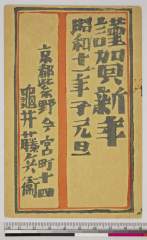 謹賀新年
昭和十一年子元旦
京都紫野今宮町十四
龜井藤兵衞